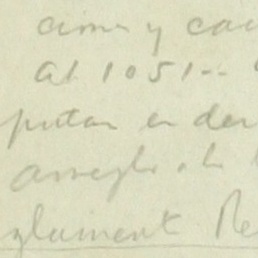 cione y ca
al 1051--
putan en der
arreglo a la
glament Re